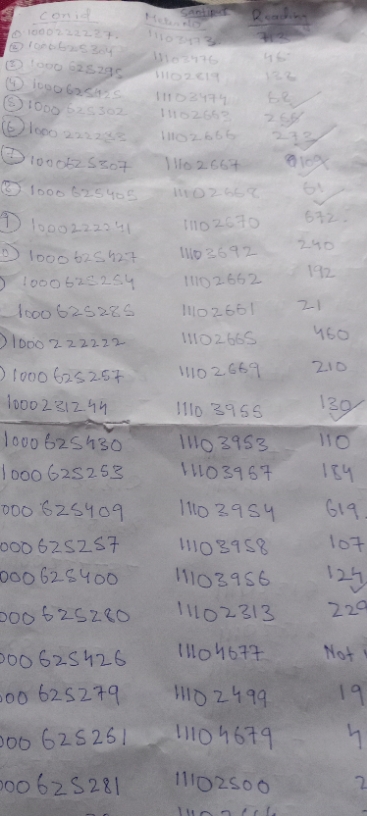 Conid Meter No Reading
① 1000222237. 11103973 713
② 1000625304 11103976 46
③ 1000 625295 11102819 138
④ 1000625425 11103974 68
⑤ 1000 625302 11102663 266
⑥ 1000 222233 11102666 273
⑦ 1000625307 11102667 109
⑧ 1000 625405 11102668 61
⑨ 1000222241 11102670 672.
1000 625427 11103692 240
1000625254 11102662 192
1000625285 11102661 21
1000222222 11102665 460
1000625257 11102669 210
1000231244 11103955 130
1000625430 11103953 110
1000625253 11103967 184
000 625409 11103954 619.
000 625257 11103958 107
000 625400 11103956 124
000 625280 11102313 229
000 625426 11104677 Not
000 625279 11102499 19
000 625261 11104679 4
000 625281 11102500 2